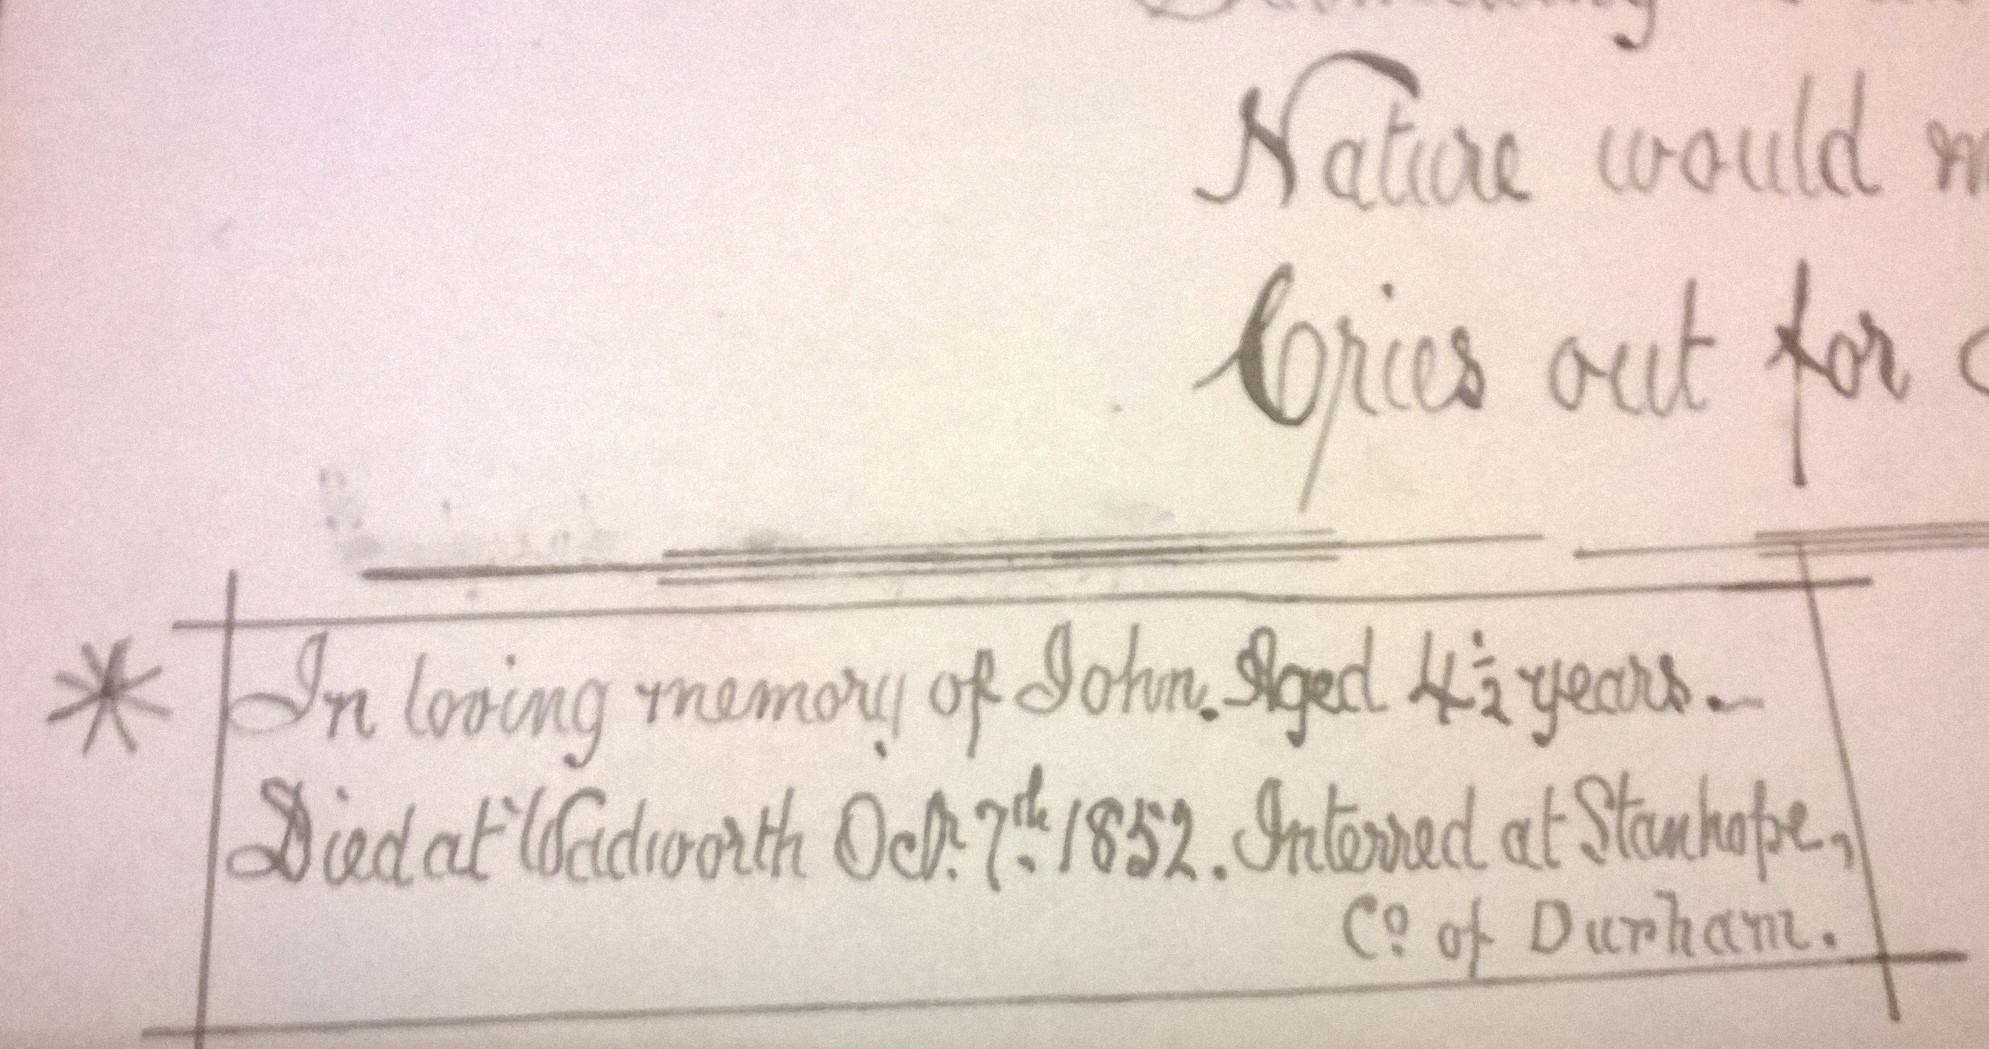 Nature would
Cries out for
* In loving memory of John. Aged 4½ years.
Died at Wadworth Octr. 7th. 1852. Interred at Stanhope,
Co. of Durham.